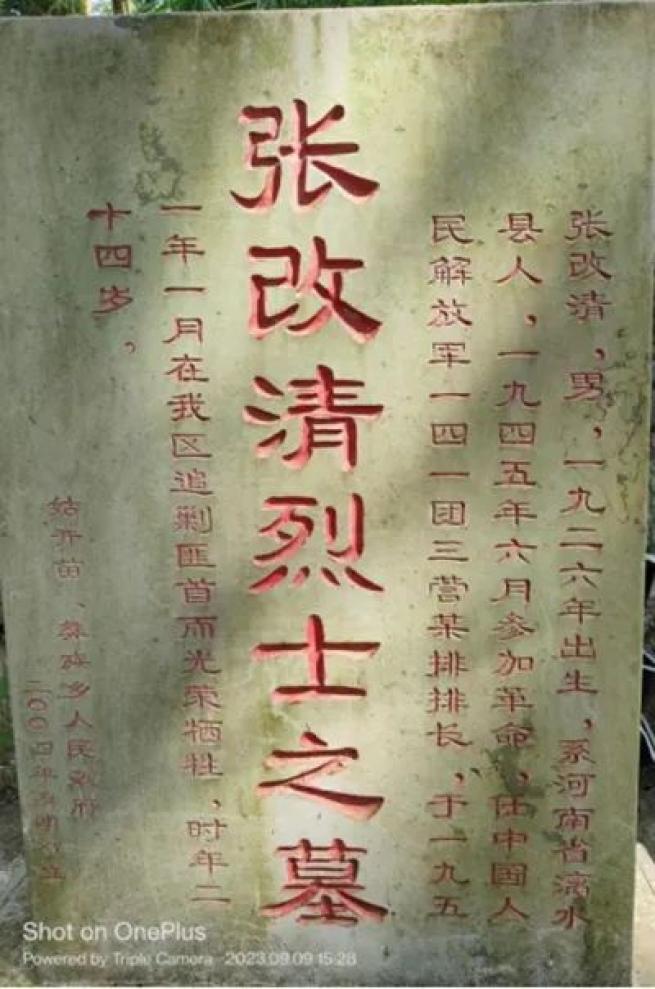 张改清，男，一九二六年出生，系河南省滴水
县人，一九四五年六月参加革命，任中国人
民解放军一四一团三营某排排长，于一九五
张改清烈士之墓
一年一月在我区追剿匪首而光荣牺牲，时年二
十四岁，
姑开苗、彝族乡人民政府
二00四年清明
Shot on OnePlus
Powered by Triple Camera 2023.09.09 15:28